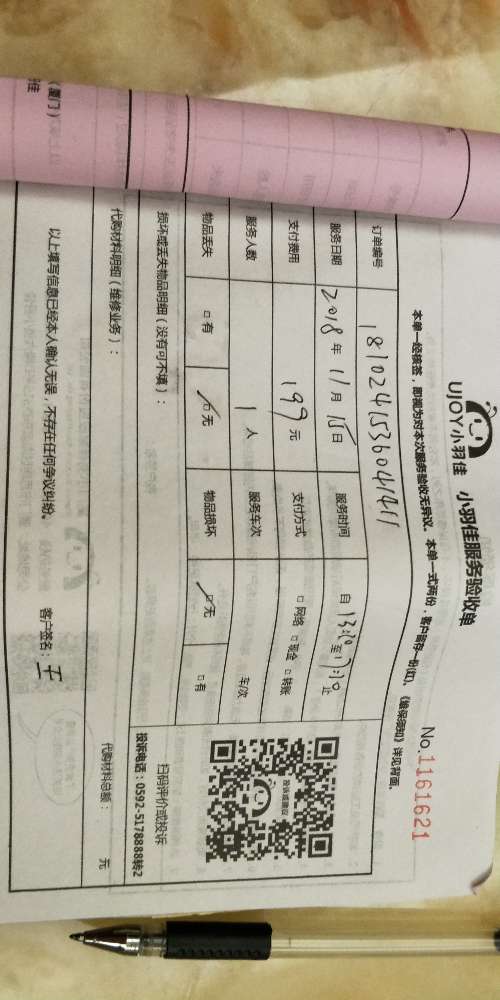 UJOY小羽佳 小羽佳服务验收单
No.1161621
本单一经核签，即视为对本次服务验收无异议。本单一式两份，客户留存一份(红)。《维保须知》详见背面。
订单编号 181024153604411
服务日期 2018年11月15日 服务时间 自13:10至17:10止
支付费用 199元 支付方式 □网络 □现金 □转账
服务人数 1人 服务车次 车/次
物品丢失 □有 □无 物品损坏 □无 □有
损坏或丢失物品明细（没有可不填）：
投诉或建议
扫码评价或投诉
投诉电话：0592-5178888转2
代购材料明细（维修业务）： 代购材料总额： 元
以上填写信息已经本人确认无误，不存在任何争议纠纷。 客户签名：王
（厦门）